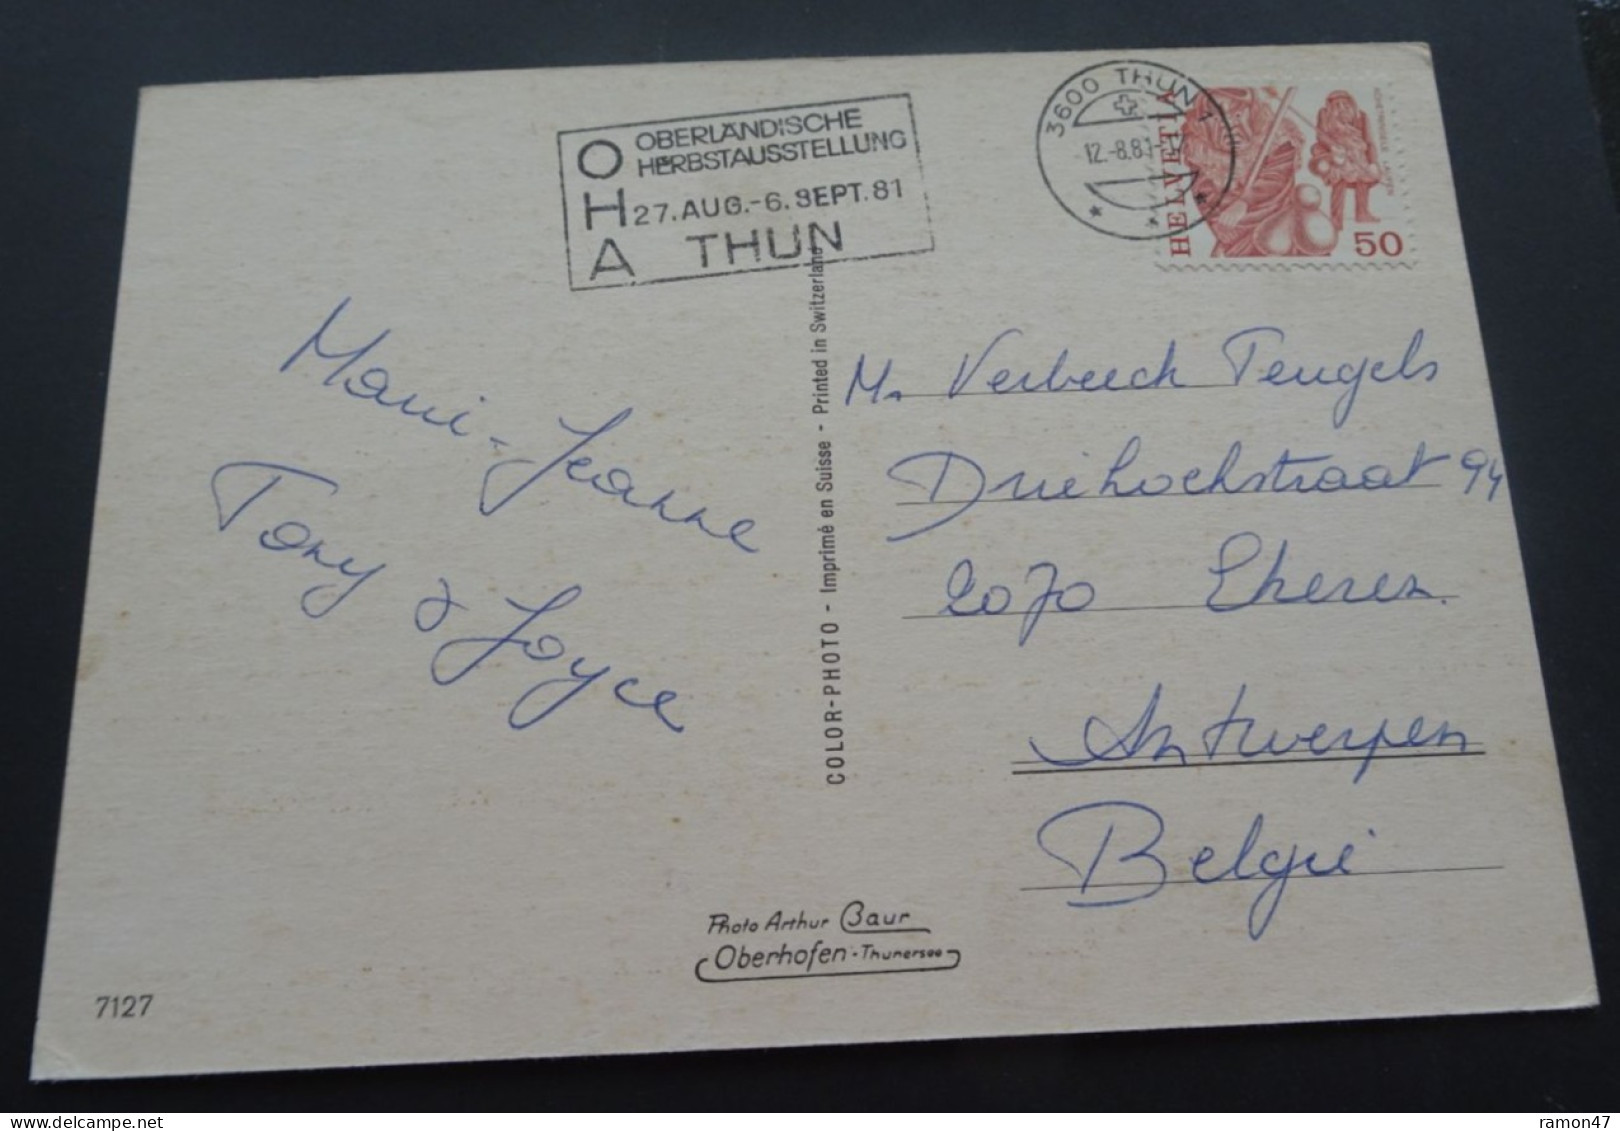 O OBERLÄNDISCHE
HERBSTAUSSTELLUNG
H 27. AUG.-6. SEPT. 81
A THUN
3600 THUN 1
12.-8.81-
HELVETIA
50
Marie-Jeanne
Tony & Joyce
COLOR-PHOTO - Imprimé en Suisse - Printed in Switzerland
Mr Verbeeck Teugels
Driehoekstraat 94
2070 Ekeren.
Antwerpen
België
Photo Arthur Baur
Oberhofen · Thunersee
7127
ramon47